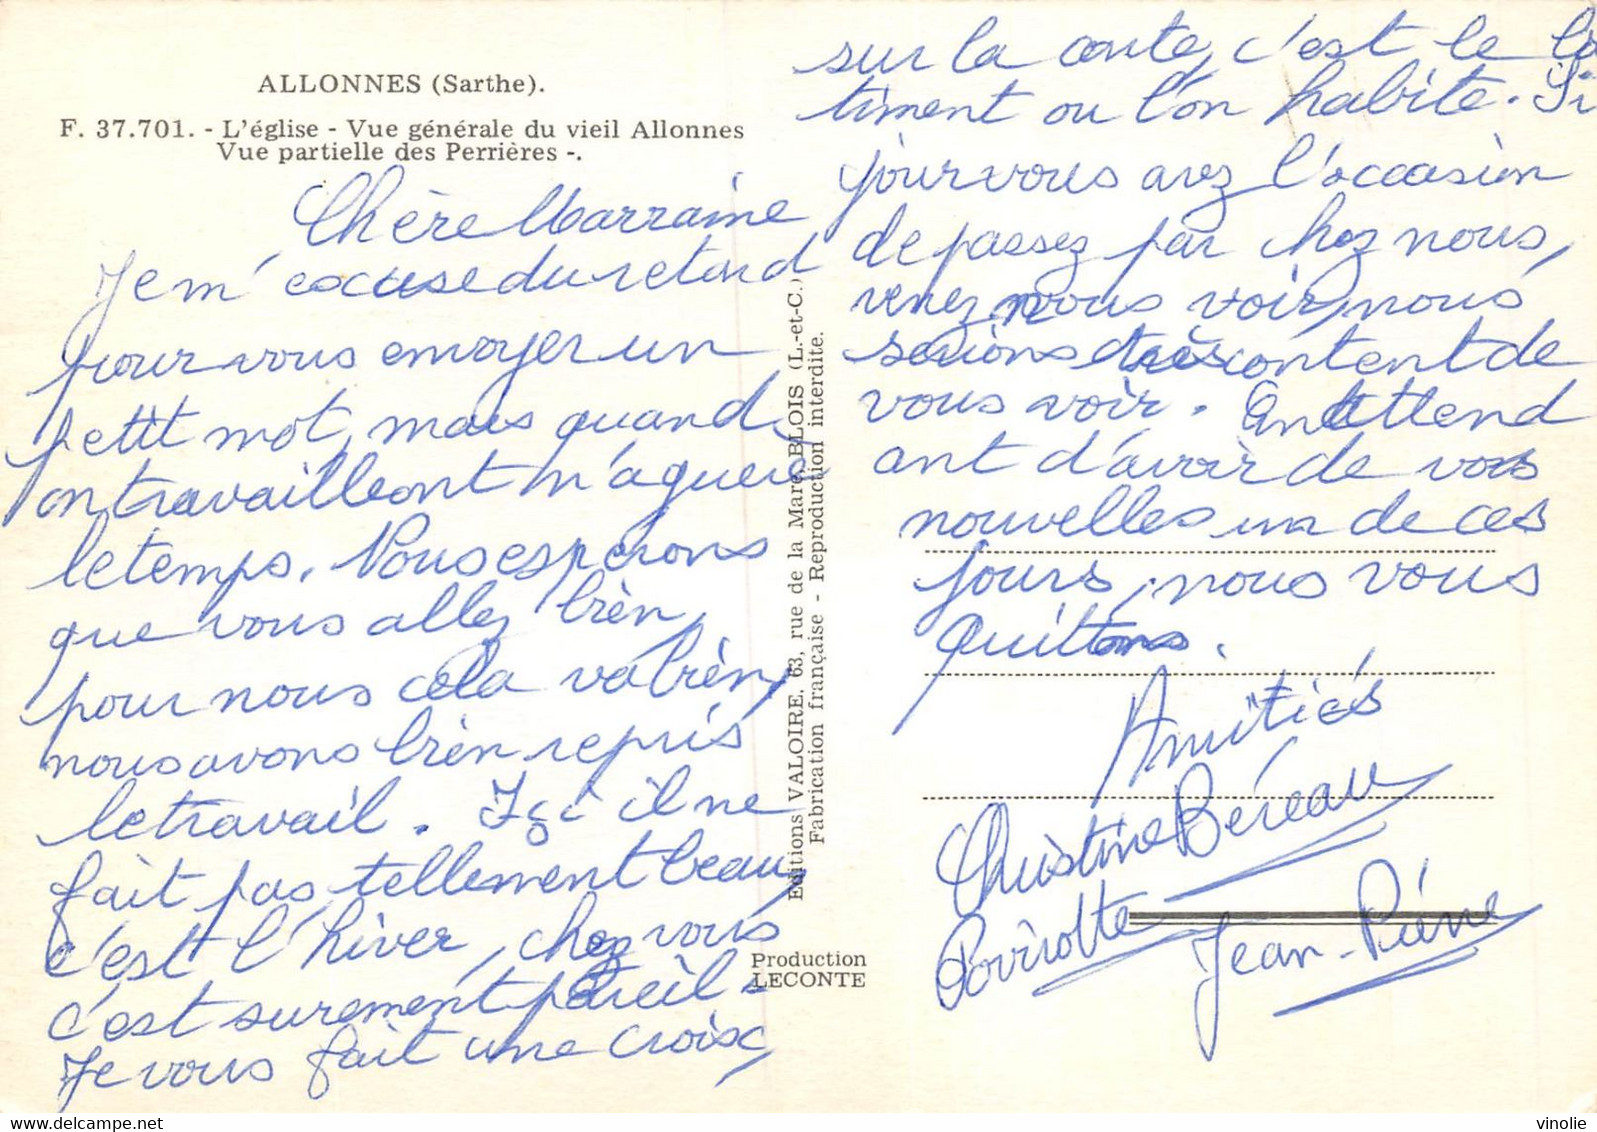 ALLONNES (Sarthe).
F. 37.701. - L'église - Vue générale du vieil Allonnes
Vue partielle des Perrières -.
Chère Marraine
Je m'excuse du retard
pour vous envoyer un
petit mot, mais quand
on travailleont n'a guere
le temps. Nous esperons
que vous allez bièn,
pour nous cela va bièn,
nous avons bièn repris
le travail. Içi il ne
fait pas tellement beau,
c'est l'hiver, chez vous
c'est surement pareil.
Je vous fait une croix,
sur la carte, c'est le ba
timent ou l'on habite. Si
jour vous avez l'occasion
de passez par chez nous,
venez nous voir, nous
serions très content de
vous voir. En attend
ant d'avoir de vos
nouvelles un de ces
jours, nous vous
quittons.
Amitiés
Christine Béreau
Poirrotte Jean-Pierre
Editions VALOIRE, 63, rue de la Mare, BLOIS (L.-et-C.)
Fabrication française - Reproduction interdite.
Production
LECONTE
vinolie